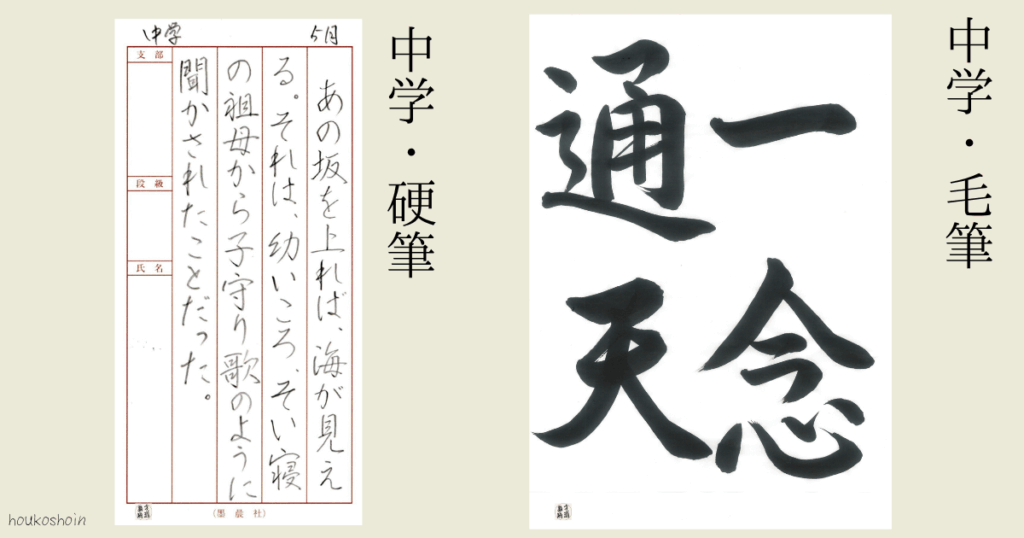 中学・毛筆
一念
通天
中学・硬筆
中学
5月
あの坂を上れば、海が見え
る。それは、幼いころ、そい寝
の祖母から子守り歌のように
聞かされたことだった。
支部
段級
氏名
(墨晨社)
houkoshoin